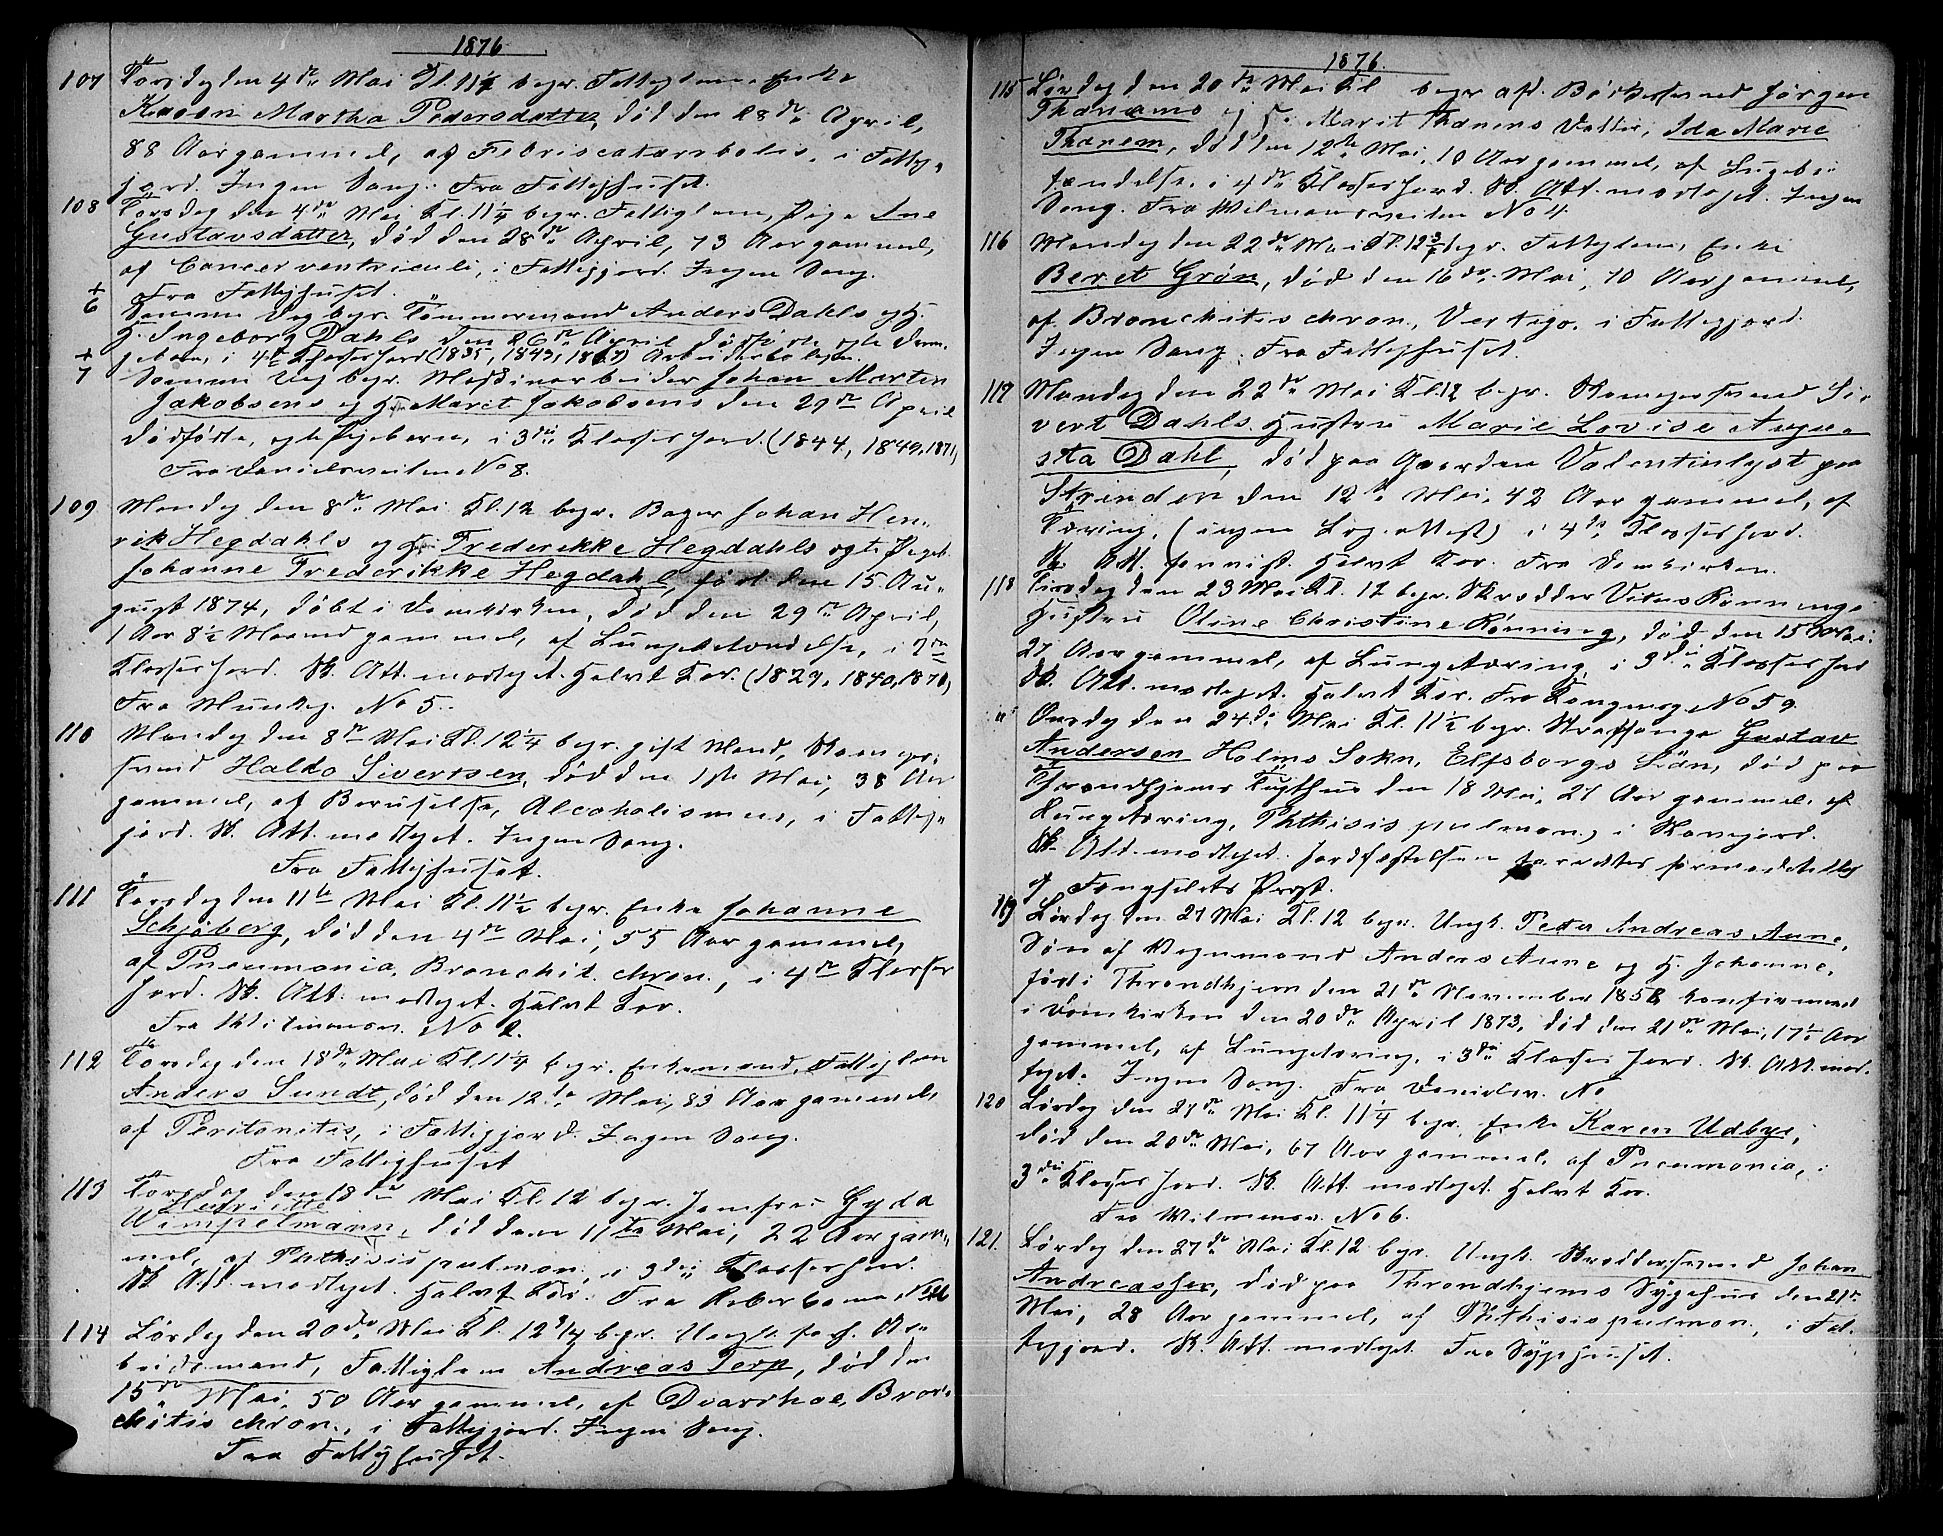 1876
107 Torsdag den 4de Mai Kl. 11¼ begr. Fattiglem, Enke
Karen Martha Pedersdatter, død den 28de April,
88 Aar gammel, af Febris catarrhalis, i Fattig-
jord. Ingen Sang. Fra Fattighuset.
108 Torsdag den 4de Mai Kl. 11¼ begr. Fattiglem, Pige Ane
Gustavsdatter, død den 28de April, 73 Aar gammel,
af Cancer ventriculi, i Fattigjord. Ingen Sang.
Fra Fattighuset.
+ 6 Samme Dag begr. Tømmermand Anders Dahls og H.
H. Ingeborg Dahls den 26de April dødfødte ægte Dren-
gebarn, i 4de Klasses Jord (1835, 1843, 1867) Arbeiderboligen.
+ 7 Samme Dag begr. Maskinarbeider Johan Martin
Jakobsens og H. Maret Jakobsens den 29de April
dødfødte, ægte Pigebarn, i 3die Klasses Jord. (1844, 1849, 1871)
Fra Danielsveiten No 8.
109 Mandag den 8de Mai Kl. 12 begr. Bager Johan Hen-
rik Hegdahls og H. Frederikke Hegdahls ægte Pigeb.
Johanne Frederikke Hegdahl, født den 15 Au-
gust 1874, døbt i Domkirken, død den 29de April,
1 Aar 8½ Maaned gammel, af Lungebetændelse, i 3die
Klasses Jord. Sk. Att. modtaget. Halvt Kor. (1829, 1840, 1870)
Fra Munkeg. No 5.
110 Mandag den 8de Mai Kl. 12¼ begr. gift Mand, Skomager-
svend Haldo Sivertsen, død den 1ste Mai, 38 Aar
gammel, af Beruselse, Alcoholismus, i Fattig-
jord. Sk. Att. modtaget. Ingen Sang.
Fra Fattighuset.
111 Torsdag den 11te Mai Kl. 11½ begr. Enke Johanne
Schjøberg, død den 4de Mai, 55 Aar gammel,
af Pneumonia, Bronchit. chron., i 4de Klasses
Jord. Sk. Att. modtaget. Halvt Kor.
Fra Wilmansv. No 2.
112 Torsdag den 18de Mai Kl. 11¼ begr. Enkemand, Fattiglem
Anders Sundt, død den 12te Mai, 83 Aar gammel,
af Peritonitis, i Fattigjord. Ingen Sang.
Fra Fattighuset
113 Torsdag den 18de Mai Kl. 12 begr. Jomfru Gyda
Henriette
Wimpelmann, død den 11te Mai, 22 Aar gam-
mel, af Phthisis pulmon., i 3die Klasses Jord.
Sk. Att. modtaget. Halvt Kor. Fra
114 Lørdag den 20de Mai Kl. 12¼ begr. Ungk. Ar-
beidsmand, Fattiglem Andreas Terp, død den
15de Mai, 50 Aar gammel, af Diarrhoe, Bron-
chitis chron., i Fattigjord. Ingen Sang.
Fra Fattighuset.
1876.
115 Lørdag den 20de Mai Kl begr. afd. Bødkersvend Jørgen
Thanems og H. Marit Thanems Datter, Ida Marie
Thanem, død den 12te Mai, 10 Aar gammel, af Lungebe-
tændelse, i 4de Klasses Jord. Sk. Att. modtaget. Ingen
Sang. Fra Wilmansveiten No 4.
116 Mandag den 22de Mai Kl. 12¾ begr. Fattiglem, Enke
Beret Grøn, død den 16de Mai, 70 Aar gammel,
af Bronchitis chron., Vertigo, i Fattigjord.
Ingen Sang. Fra Fattighuset.
117 Mandag den 22de Mai Kl. 12 begr. Skomagersvend Si-
vert Dahls Hustru Marie Lovise Augu-
sta Dahl, død paa Gaarden Valentinlyst paa
Strinden den 12te Mai, 42 Aar gammel, af
Tæring, (ingen Lægeattest) i 4de Klasses Jord.
Sk. Att. forevist. Halvt Kor. Fra Domkirken.
118 Tirsdag den 23 Mai Kl. 12 begr. Skrædder Vitus Rønnings
Hustru Oline Christine Rønning, død den 15 Mai,
27 Aar gammel, af Lungetæring, i 3die Klasses Jord
Sk. Att. modtaget. Halvt Kor. Fra Kongensg. No 59.
Onsdag den 24de Mai Kl. 11½ begr. Straffange Gustav
Andersen Holms Sokn, Elfsborgs Län, død paa
Throndhjems Tugthus den 18 Mai, 27 Aar gammel, af
Lungetæring, Phthisis pulmon., i Kirkejord.
Sk. Att. modtaget. Jordfæstelsen forrettes formedelst
af Fængselets Præst.
119 Lørdag den 27 Mai Kl. 12 begr. Ungk. Peter Andreas Aune,
Søn af Vognmand Anders Aune og H. Johanne,
født i Throndhjem den 21de November 1858, konfirmeret
i Domkirken den 20de April 1873, død den 21de Mai, 17½ Aar
gammel, af Lungetæring, i 3die Klasses Jord. Sk. Att. mod-
taget. Ingen Sang. Fra Danielsv. No
120 Lørdag den 27de Mai Kl. 11¼ begr. Enke Karen Udbye,
død den 20de Mai, 67 Aar gammel, af Pneumonia, i
3die Klasses Jord. Sk. Att. modtaget. Halvt Kor.
Fra Wilmansv. No 6.
121. Lørdag den 27de Mai Kl. 12 begr. Ungk. Skræddersvend Johan
Andreassen, død paa Throndhjems Sygehus den 21de
Mai, 28 Aar gammel, af Phthisis pulmon., i Fat-
tigjord. Sk. Att. modtaget. Fra Sygehuset.